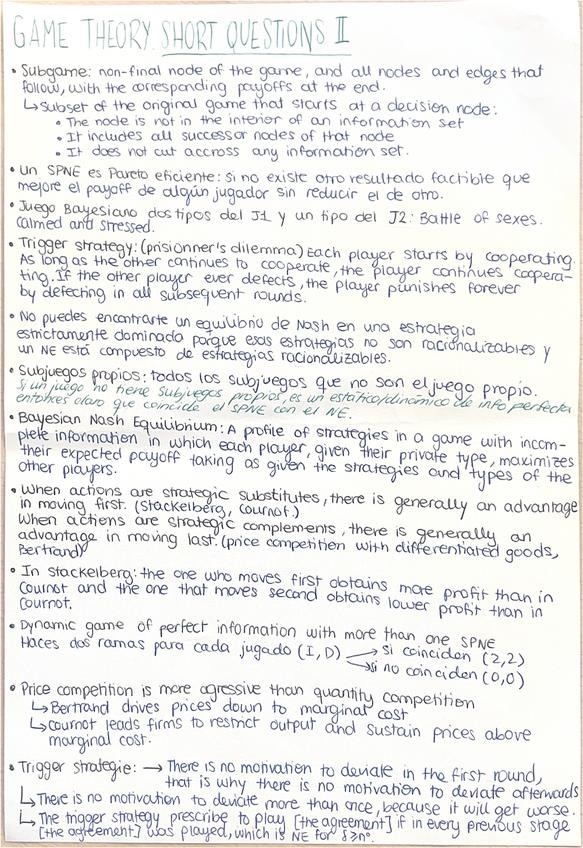 GAME THEORY SHORT QUESTIONS II
• Subgame: non-final node of the game, and all nodes and edges that
follow, with the corresponding payoffs at the end.
↳ Subset of the original game that starts at a decision node:
• The node is not in the interior of an information set
• It includes all successor nodes of that node
• It does not cut accross any information set.
• Un SPNE es Pareto eficiente: si no existe otro resultado factible que
mejore el payoff de algún jugador sin reducir el de otro.
• Juego Bayesiano dos tipos del J1 y un tipo del J2: Battle of sexes.
Calmed and stressed.
• Trigger strategy: (prisionner's dilemma) Each player starts by cooperating.
As long as the other continues to cooperate, the player continues coopera-
ting. If the other player ever defects, the player punishes forever
by defecting in all subsequent rounds.
• No puedes encontrarte un equilibrio de Nash en una estrategia
estrictamente dominado porque esas estrategias no son racionalizables y
un NE está compuesto de estrategias racionalizables.
• Subjuegos propios: todos los subjuegos que no son el juego propio.
Si un juego no tiene subjuegos propios, es un estático/dinámico de info perfecta
entonces claro que coincide el SPNE con el NE.
• Bayesian Nash Equilibrium: A profile of strategies in a game with incom-
plete information in which each player, given their private type, maximizes
their expected payoff taking as given the strategies and types of the
other players.
• When actions are strategic substitutes, there is generally an advantage
in moving first. (Stackelberg, Cournot.)
When actions are strategic complements, there is generally an
advantage in moving last. (price competition with differentiated goods,
Bertrand)
• In Stackelberg: the one who moves first obtains more profit than in
Cournot and the one that moves second obtains lower profit than in
Cournot.
• Dynamic game of perfect information with more than one SPNE
Haces dos ramas para cada jugado (I, D) → si coinciden (2,2)
→ si no coinciden (0,0)
• Price competition is more agressive than quantity competition
↳ Bertrand drives prices down to marginal cost
↳ Cournot leads firms to restrict output and sustain prices above
marginal cost.
• Trigger strategie: → There is no motivation to deviate in the first round,
that is why there is no motivation to deviate afterwards
↳ There is no motivation to deviate more than once, because it will get worse.
↳ The trigger strategy prescribe to play [the agreement] if in every previous stage
[the agreement] was played, which is NE for δ≥nº.